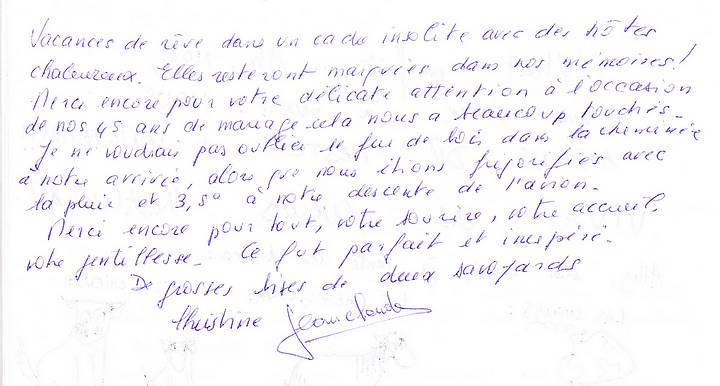 Vacances de rêve dans un cadre insolite avec des hôtes
chaleureux. Elles resteront marquées dans nos mémoires!
Merci encore pour votre délicate attention à l'occasion
de nos 45 ans de mariage cela nous a beaucoup touchés.
Je ne voudrais pas oublier le feu de bois dans la cheminée
à notre arrivée, alors que nous étions frigorifiés avec
la pluie et 3,5° à notre descente de l'avion.
Merci encore pour tout, votre sourire, votre accueil,
votre gentillesse. Ce fut parfait et inespéré.
De grosses bises de deux savoyards
Christine Jean claude